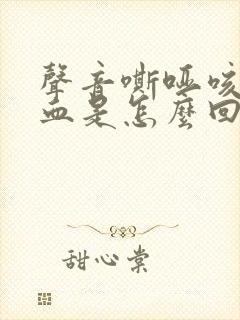 聲音嘶啞咳
血是怎麼回
甜心棠